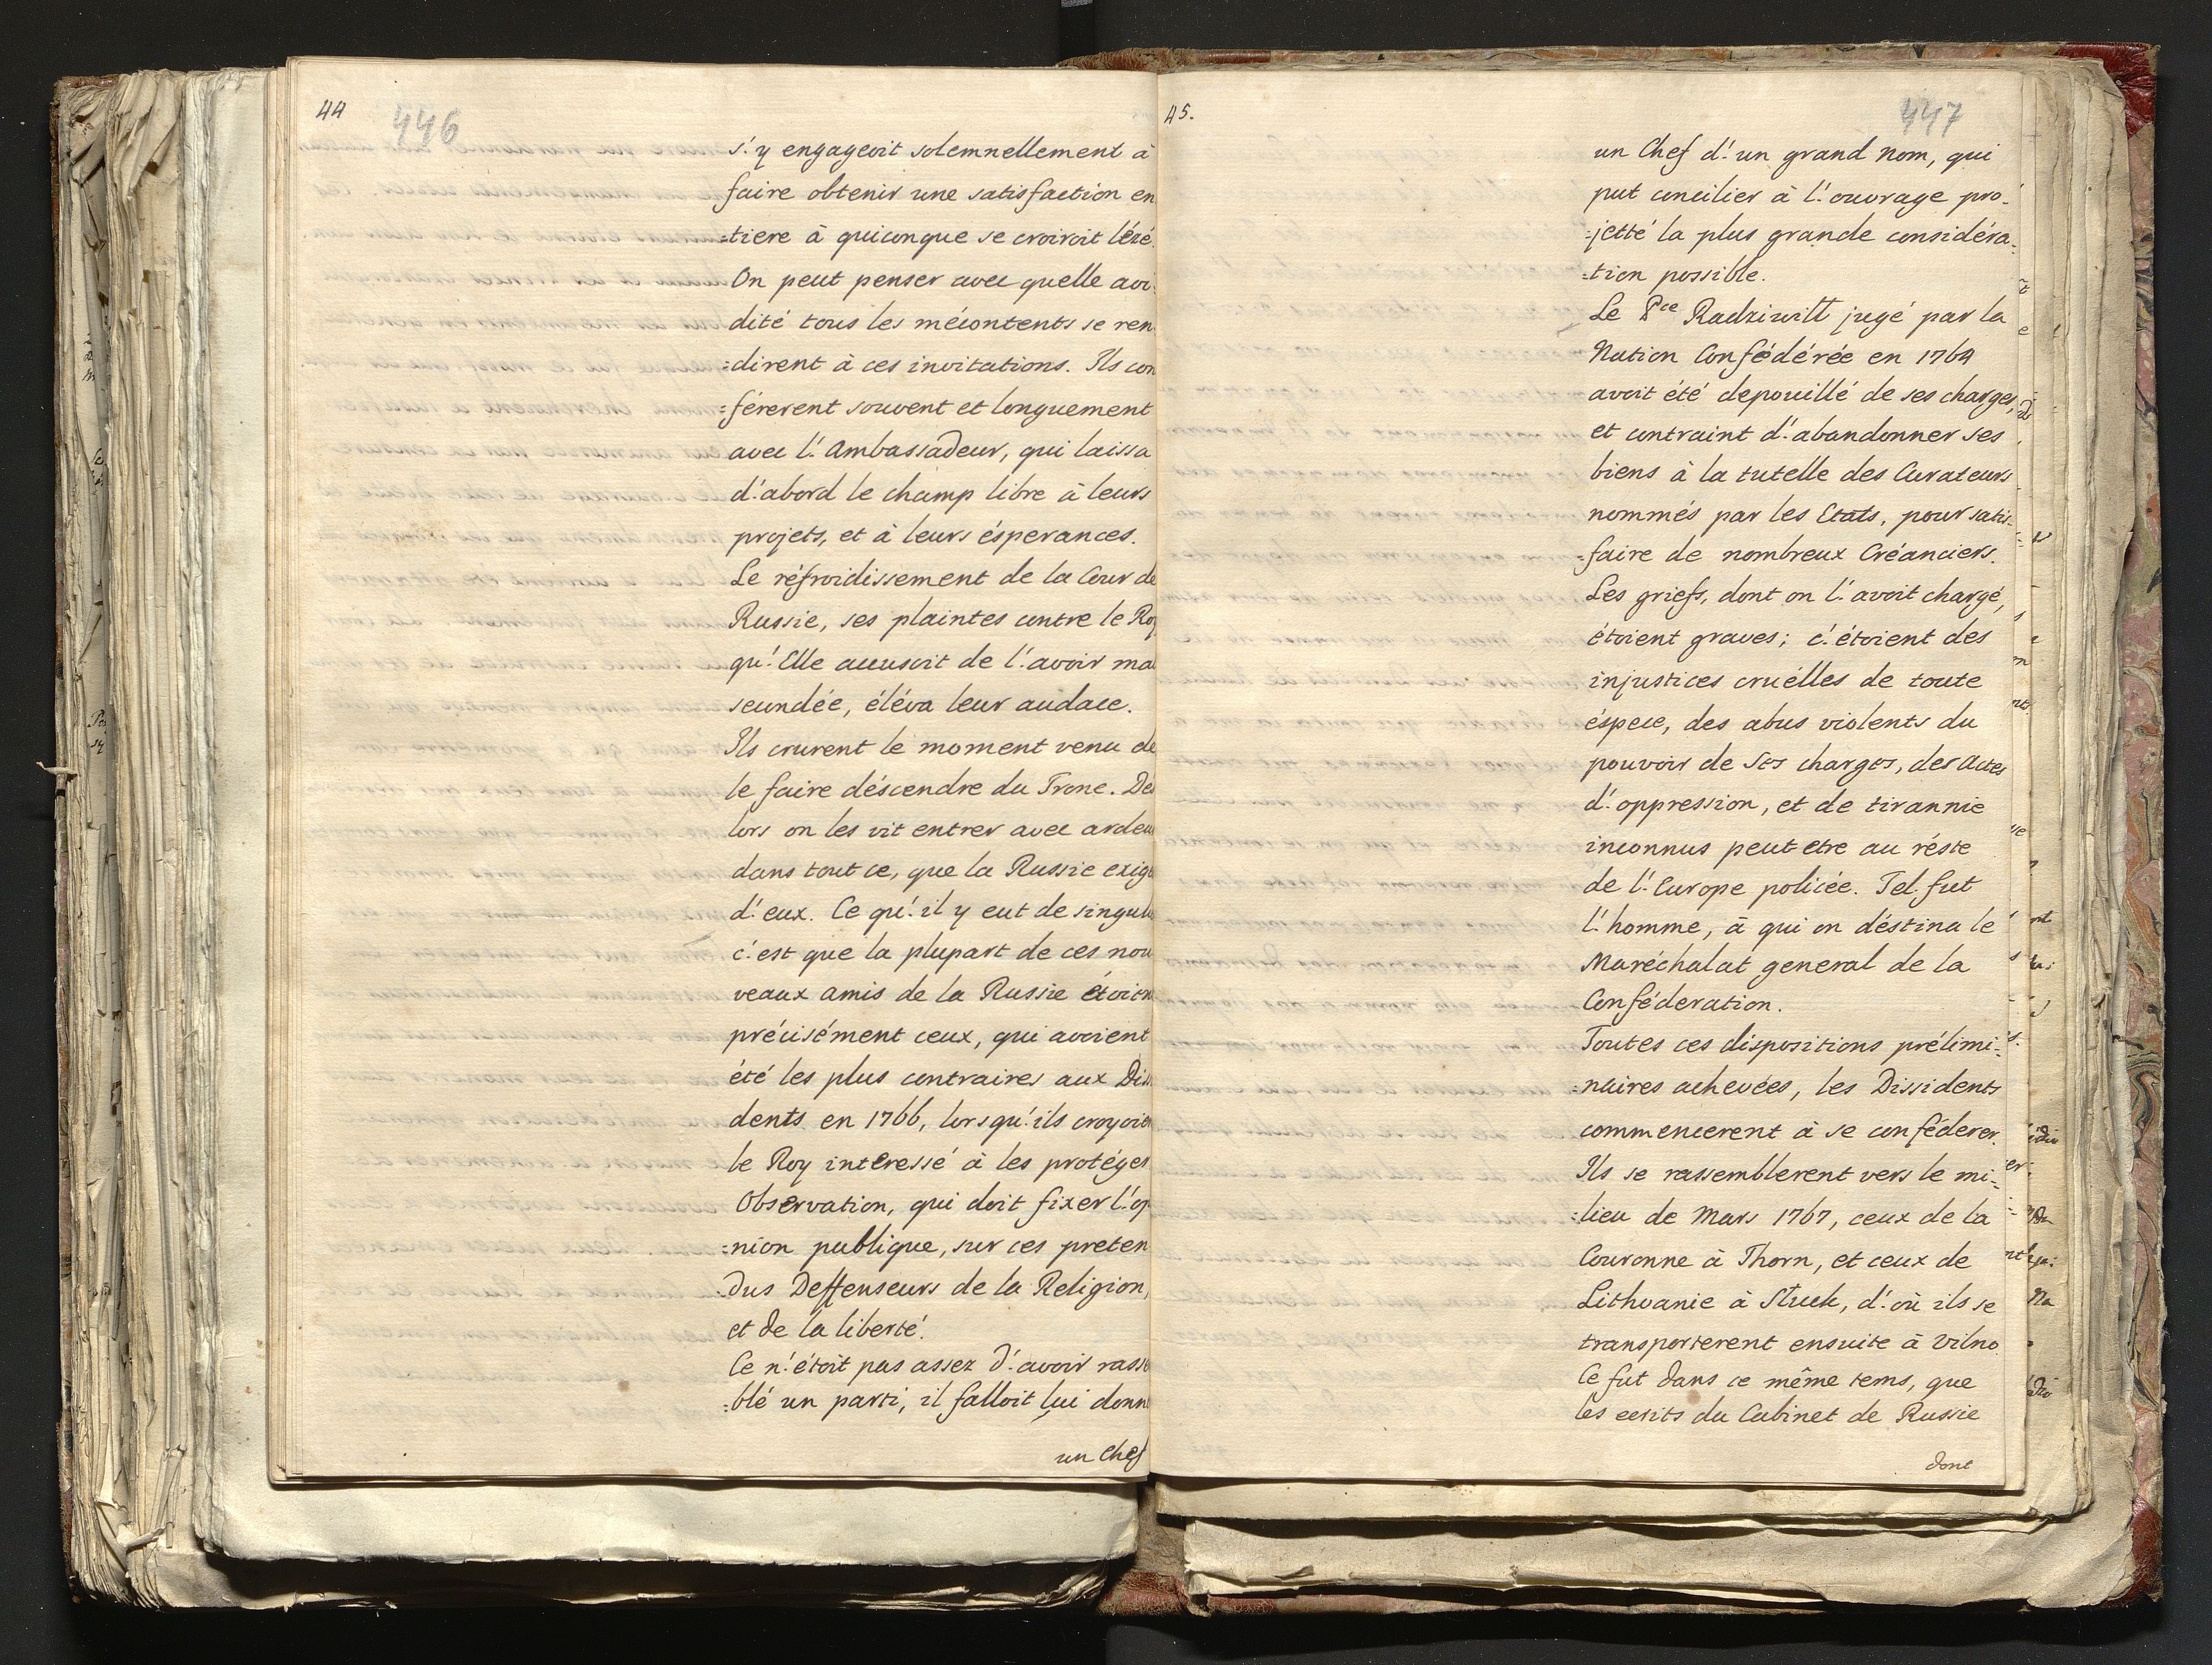 44
446
s'.y engageoit solemnellement à
faire obtenir une satisfaction en
=tiere à quiconque se croiroit lézé.
On peut penser avec quelle avi
dité tous les mécontents se ren
=dirent à ces invitations. Ils con
=férerent souvent et longuement
avec l'.Ambassadeur, qui laissa
d'.abord le champ libre à leurs
projets, et à leurs ésperances.
Le réfroidissement de la Cour de
Russie, ses plaintes contre le Roy
qu'.Elle accusoit de l'.avoir ma
secundée, éléva leur audace.
Ils crurent le moment venu de
le faire déscendre du Trone. Des
lors on les vit entrer avec ardeu
dans tout ce, que la Russie exige
d'.eux. Ce qu'.il y eut de singul
c'.est que la plupart de ces nou
veaux amis de la Russie étoien
précisément ceux, qui avoient
été les plus contraires aux Diss
dents en 1766, lorsqu'.ils croyoien
le Roy interessé à les protéger
Observation, qui doit fixer l'.op
=nion publique, sur ces preten
=dus Deffenseurs de la Religion,
et de la liberté.
Ce n'.étoit pas assez d'.avoir rasse
=blé un parti, il falloit lui donn
un Chef
45.
447
un Chef d'.un grand nom, qui
put concilier à l'.ouvrage pro=
=jetté la plus grande considéra=
=tion possible.
Le Pce Radziwiłł jugé par la
Nation Confédérée en 1764
avoit été depouillé de ses charges,
et contraint d'.abandonner ses
biens à la tutelle des Curateurs
nommés par les Etats, pour satis=
=faire de nombreux Créanciers.
Les griefs, dont on l'.avoit chargé,
étoient graves; c'.étoient des
injustices cruélles de toute
éspece, des abus violents du
pouvoir de Ses charges, des Actes
d'.oppression, et de tirannie
inconnus peut etre au réste
de l'.Europe policée. Tel fut
l'.homme, à qui on déstina le
Maréchalat general de la
Conféderation.
Toutes ces dispositions prélimi=
=naires achevées, les Dissidents
commencerent à se conféderer.
Ils se rassemblerent vers le mi=
=lieu de Mars 1767, ceux de la
Couronne à Thorn, et ceux de
Lithuanie à Słuck, d'.où ils se
transporterent ensuite à Vilno.
Ce fut dans ce même tems, que
les ecrits du Cabinet de Russie
dont